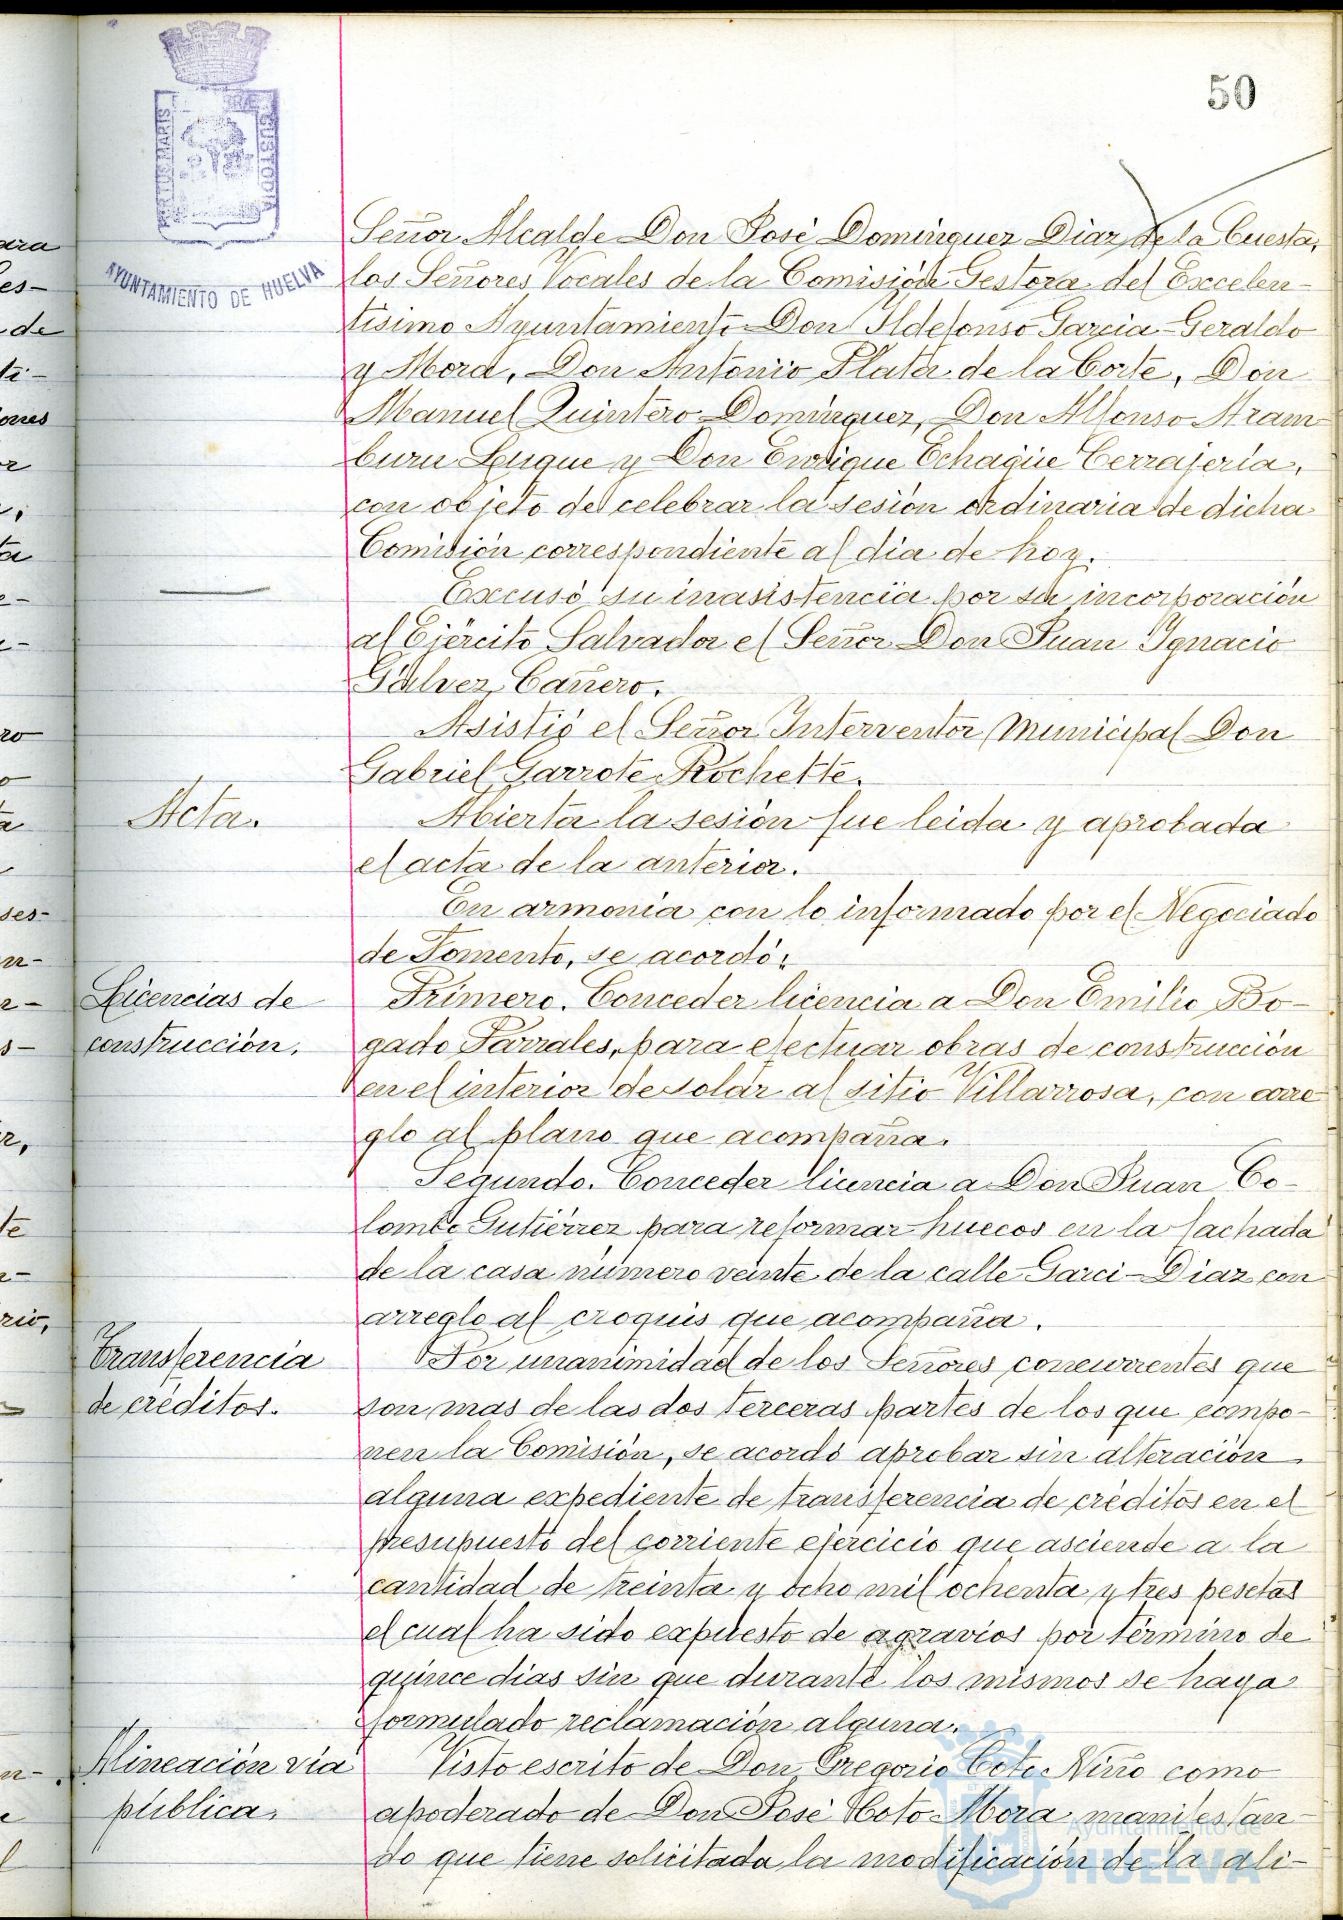 50
PORTUS MARIS ET TERRÆ CUSTODIA
AYUNTAMIENTO DE HUELVA
Señor Alcalde Don José Dominguez Diaz de la Cuesta,
los Señores Vocales de la Comisión Gestora del Excelen-
tísimo Ayuntamiento Don Ildefonso Garcia-Geraldo
y Mora, Don Antonio Plata de la Corte, Don
Manuel Quintero Dominguez, Don Alfonso Aram-
buru Luque y Don Enrique Echagüe Cerrajería,
con objeto de celebrar la sesión ordinaria de dicha
Comisión correspondiente al dia de hoy.
Excusó su inasistencia por su incorporación
al Ejército Salvador el Señor Don Juan Ignacio
Gálvez Cañero.
Asistió el Señor Interventor Municipal Don
Gabriel Garrote Rochette.
Acta.
Abierta la sesión fue leida y aprobada
el acta de la anterior.
En armonía con lo informado por el Negociado
de Fomento, se acordó:
Licencias de
construcción.
Primero. Conceder licencia a Don Emilio Bo-
gado Parrales, para efectuar obras de construcción
en el interior de solar al sitio Villarrosa, con arre-
glo al plano que acompaña.
Segundo. Conceder licencia a Don Juan Co-
lombo Gutiérrez para reformar huecos en la fachada
de la casa número veinte de la calle Garci-Diaz con
arreglo al croquis que acompaña.
Transferencia
de créditos.
Por unanimidad de los Señores concurrentes que
son mas de las dos terceras partes de los que compo-
nen la Comisión, se acordó aprobar sin alteración
alguna expediente de transferencia de créditos en el
presupuesto del corriente ejercicio que asciende a la
cantidad de treinta y ocho mil ochenta y tres pesetas
el cual ha sido expuesto de agravios por término de
quince dias sin que durante los mismos se haya
formulado reclamación alguna.
Alineación vía
pública.
Visto escrito de Don Gregorio Coto Niño como
apoderado de Don José Coto Mora manifestan-
do que tiene solicitada la modificación de la ali-
Ayuntamiento de
HUELVA